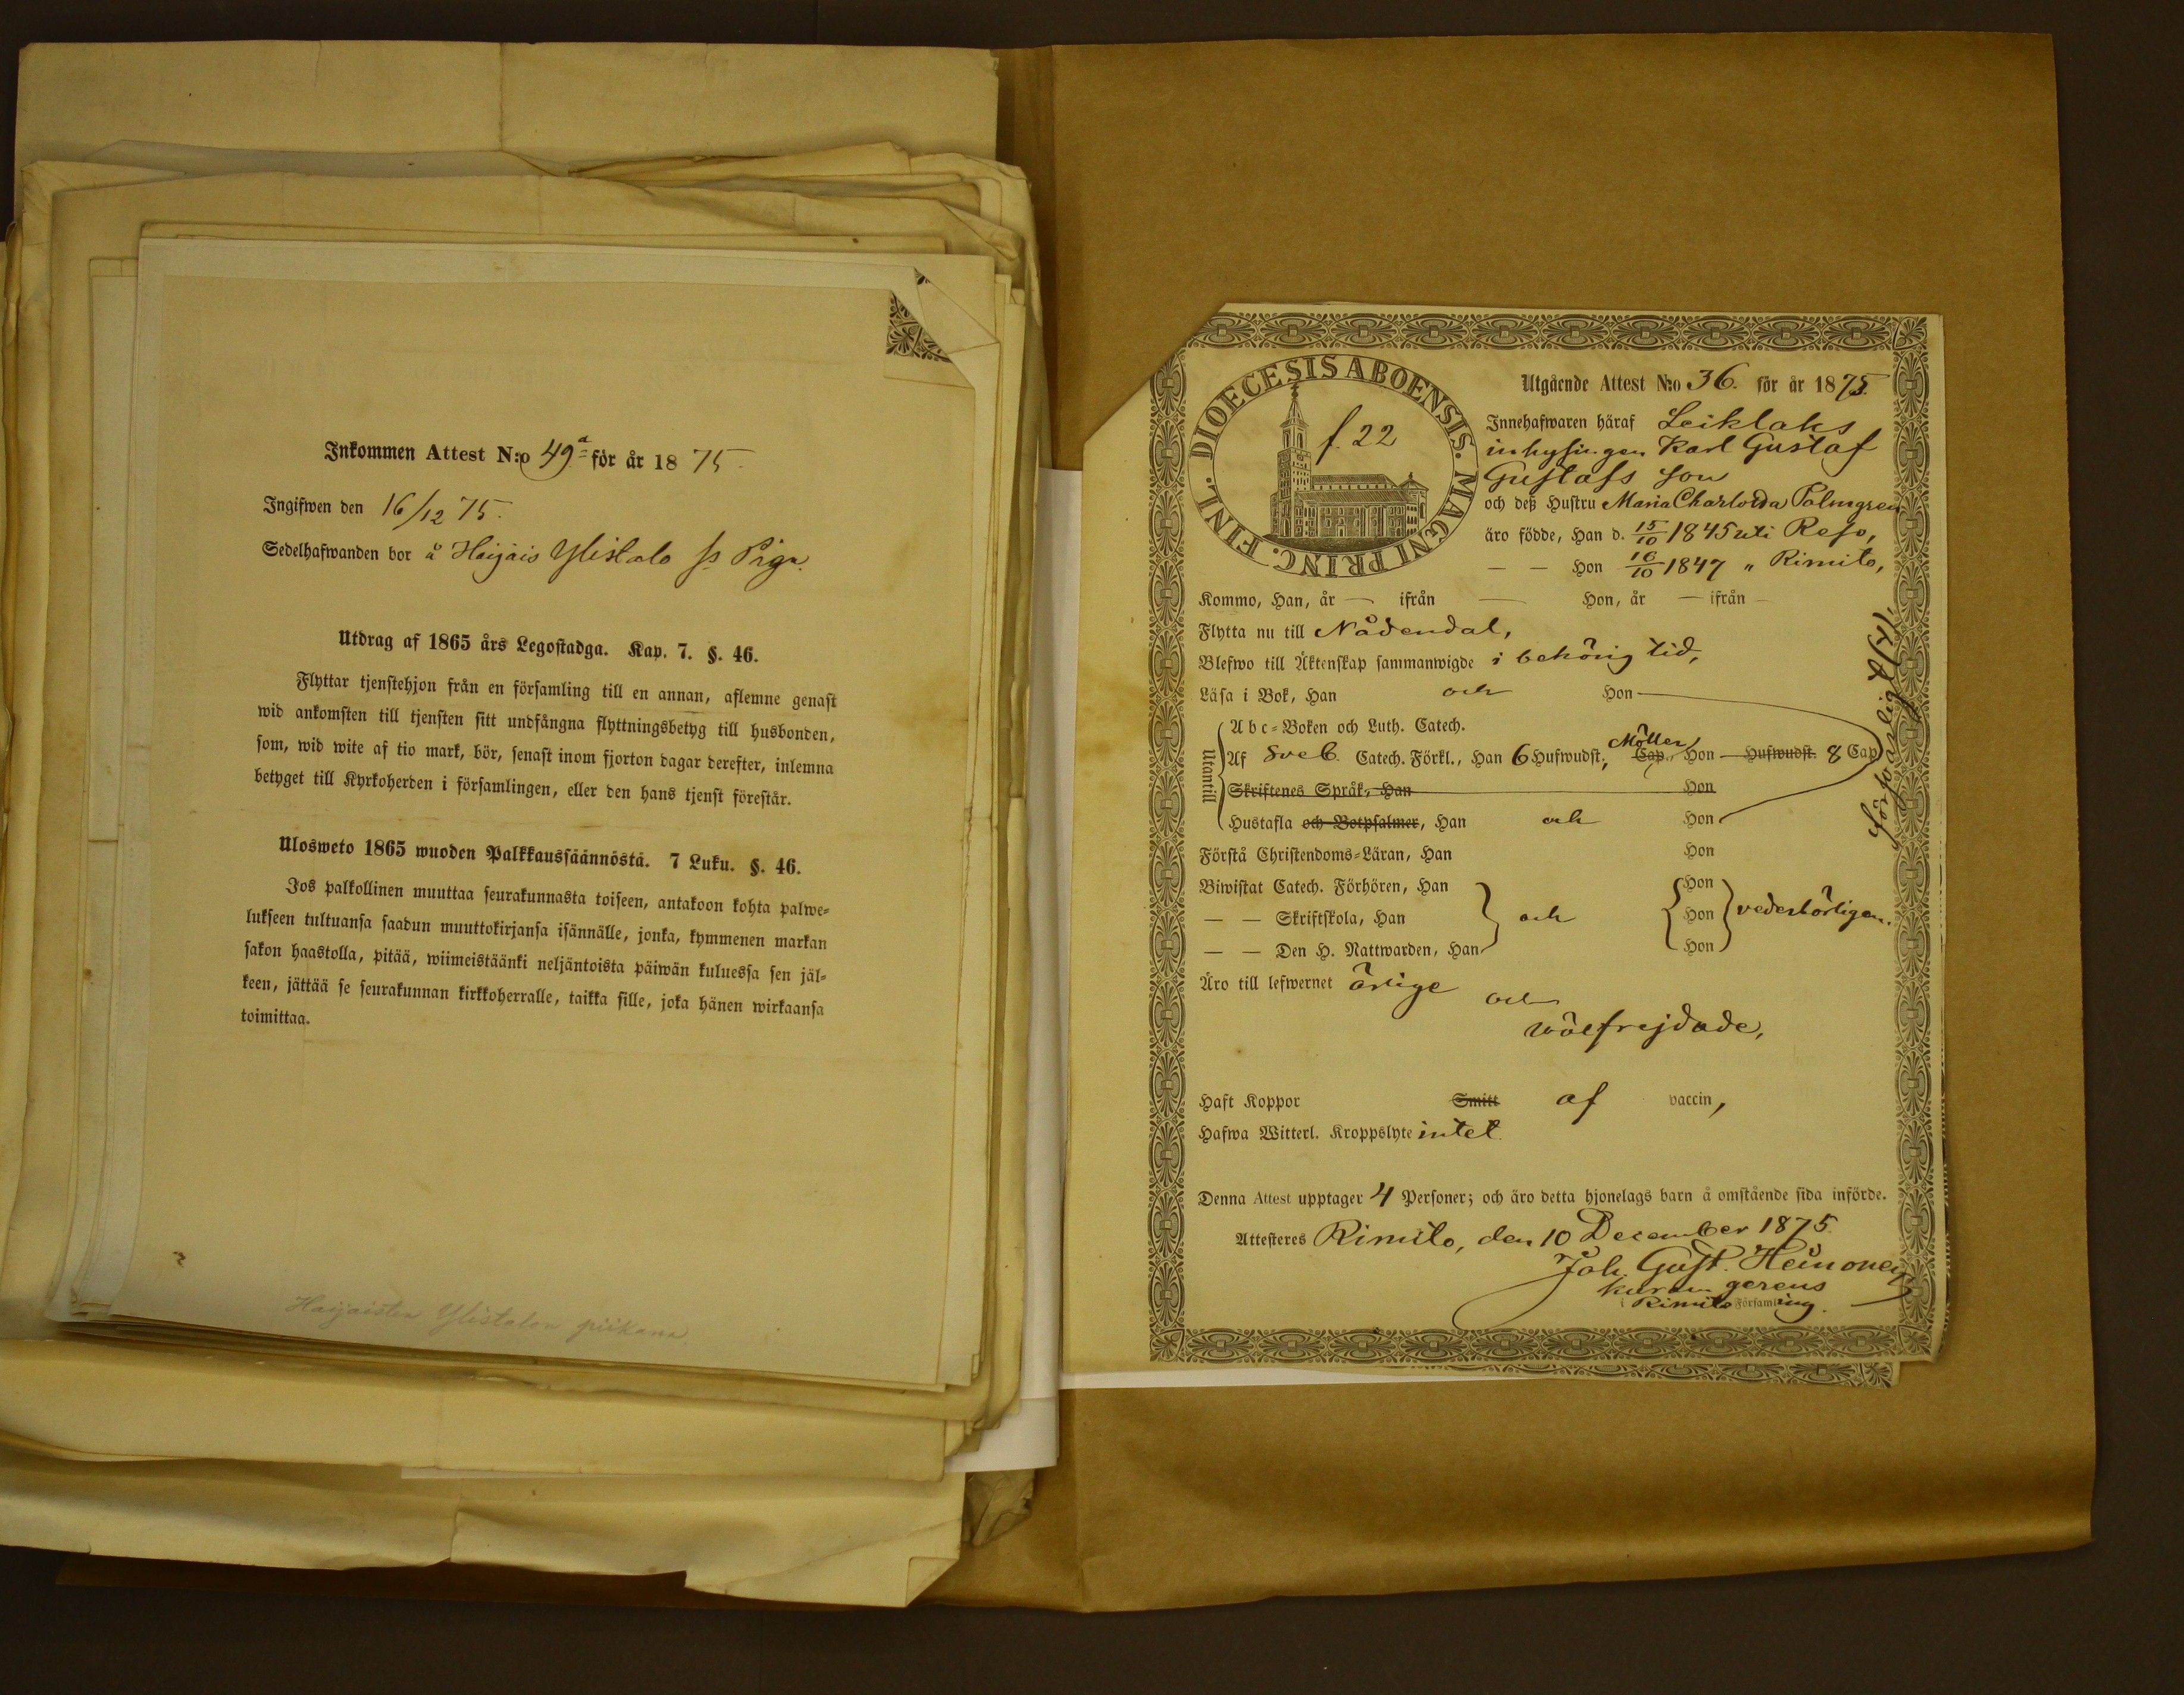 Inkommen Attest N:o 49a för år 1875.
Ingifwen den 16/12 75.
Sedelhafwanden bor å Haijais Ylistalo ss Piga.
Utdrag af 1865 års Legostadga. Kap. 7. §. 46.
Flyttar tjenstehjon från en församling till en annan, aflemne genast
wid ankomsten till tjensten sitt undfångna flyttningsbetyg till husbonden,
som, wid wite af tio mark, bör, senast inom fjorton dagar derefter, inlemna
betyget till Kyrkoherden i församlingen, eller den hans tjenst förestår.
Ulosweto 1865 wuoden Palkkaussäännöstä. 7 Luku. §. 46.
Jos palkollinen muuttaa seurakunnasta toiseen, antakoon kohta palwe-
lukseen tultuansa saadun muuttokirjansa isännälle, jonka, kymmenen markan
sakon haastolla, pitää, wiimeistäänki neljäntoista päiwän kuluessa sen jäl-
keen, jättää se seurakunnan kirkkoherralle, taikka sille, joka hänen wirkaansa
toimittaa.
Haijaisten Ylistalon piikana
DIOECESIS ABOENSIS. MAGNI PRINC. FINL.
f. 22
Utgående Attest N:o 36. för år 1875.
Innehafwaren häraf Leiklaks
inhysingen Karl Gustaf
Gustafs son
och deß Hustru Maria Charlotta Palmgren
äro födde, Han d. 15/10 1845 uti Reso,
— — Hon 16/10 1847 " Rimito,
Kommo, Han, år — ifrån — Hon, år — ifrån —
Flytta nu till Nådendal,
Blefwo till Äktenskap sammanwigde i behörig tid,
Läsa i Bok, Han och Hon
Utantill
Abc-Boken och Luth. Catech.
Af Sveb. Catech. Förkl., Han 6 Hufwudst., Möller Cap., Hon Hufwudst. 8 Cap
Skriftenes Språk, Han Hon
Hustafla och Botpsalmer, Han och Hon
försvarligt (4),
Förstå Christendoms-Läran, Han Hon
Biwistat Catech. Förhören, Han Hon
— — Skriftskola, Han och Hon vederbörligen.
— — Den H. Nattwarden, Han Hon
Äro till lefwernet ärlige
och
wälfrejdade,
Haft Koppor Smitt af vaccin,
Hafwa Witterl. Kroppslyte intet.
Denna Attest upptager 4 Personer; och äro detta hjonelags barn å omstående sida införde.
Attesteres Rimito, den 10 December 1875.
Joh. Gust. Heinonen
kuram gerens
i Rimito Församling.